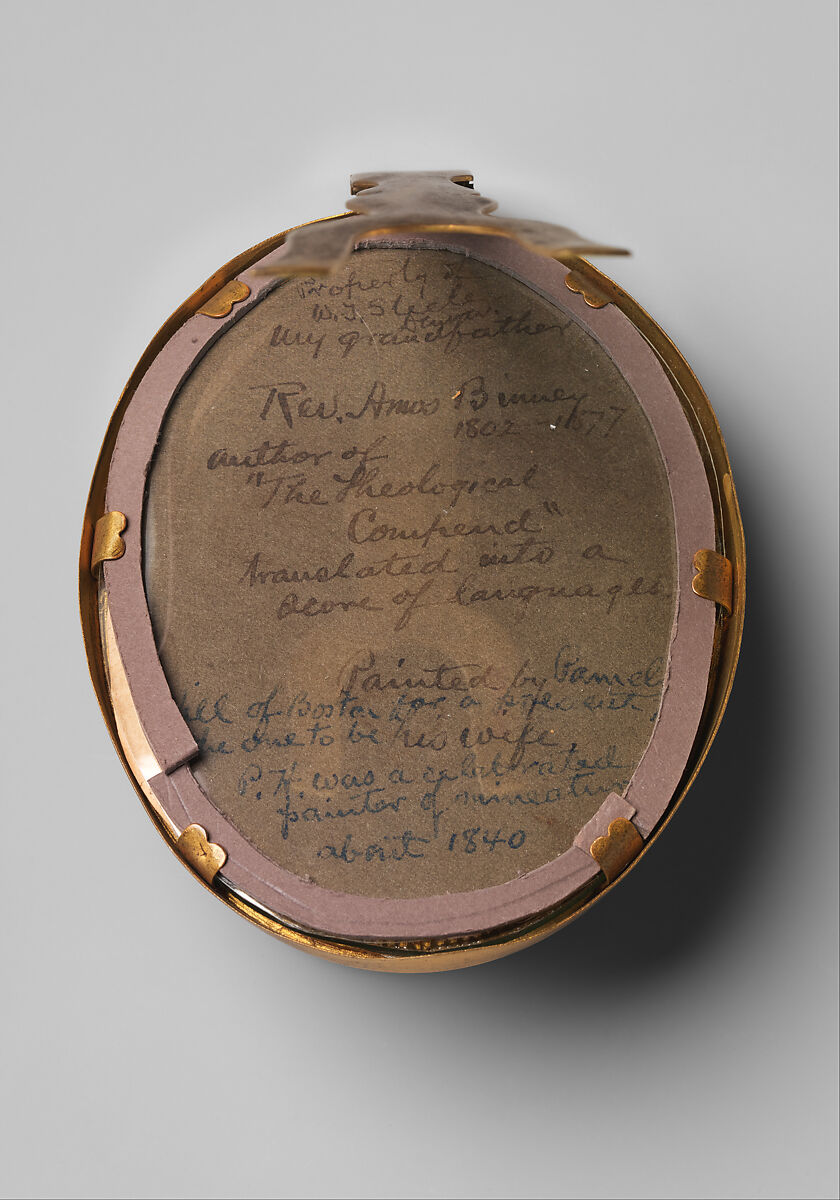 Property of
W. J. Steele
My grandfather
Rev. Amos Binney
1802-1877
author of
"The Theological
Compend"
translated into a
score of languages.
Painted by Pamela
Hill of Boston for a present,
to be his wife.
P. H. was a celebrated
painter of
about 1840